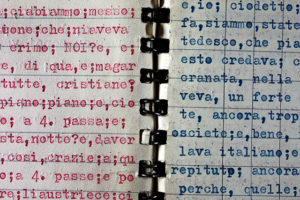 ;ciabiammo;messo;
uone;che;niaveva
erimo; NOI?e, e;
e, di qua,e;magar
tutte, cristiane?
piano;piano;e,cio
o; a 4. passa;e;
sta,notte?e,daver
cosi,crazie;a;qu
o;a 4. passe;e po
re;liaustriece;ci
e,io; ciodetto;
fa,siammo,state
tedesco,che pia
esto credava; c
oranata, nella
veva, un forte
te, ancora,trop
osciete;e,bene,
lava italiano;e
repitutp; ancora
perche, quelle;